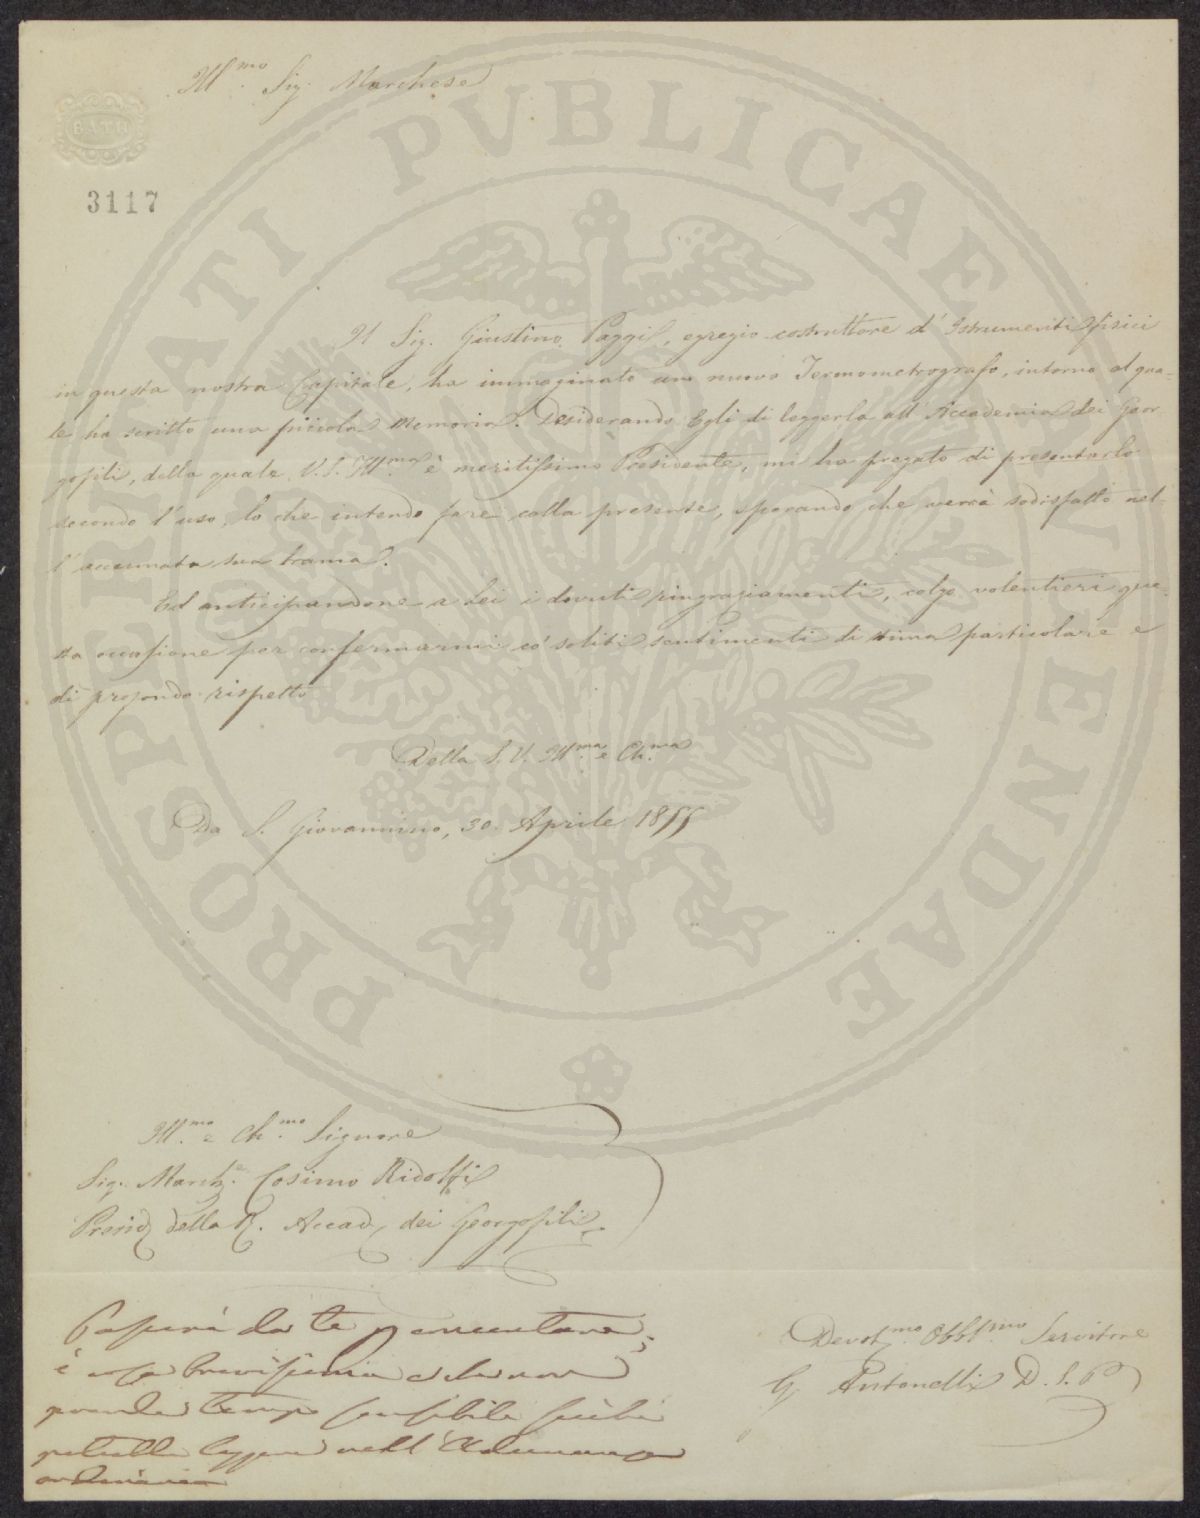 Ill.mo Sig. Marchese
BATH
3117
PROSPERITATI PVBLICAE AVGENDAE
Il Sig. Giustino Paggi, egregio costruttore d'Istrumenti fisici
in questa nostra Capitale, ha immaginato un nuovo Termometrografo, intorno al qua-
le ha scritto una piccola Memoria. Desiderando Egli di leggerla all'Accademia dei Geor-
gofili, della quale V. S. Ill.ma è meritissimo Presidente, mi ha pregato di presentarlo
secondo l'uso, lo che intendo fare colla presente, sperando che verrà sodisfatto nel-
l'accennata sua brama.
Ed anticipandone a Lei i dovuti ringraziamenti, colgo volentieri que-
sta occasione per confermarmi co' soliti sentimenti di stima particolare e
di profondo rispetto
Della S. V. Ill.ma e Ch.ma
Da S. Giovannino, 30. Aprile 1855
Ill.mo e Ch.mo Signore
Sig. March.e Cosimo Ridolfi
Presid. della R. Accad. dei Georgofili
Devot.mo Obbl.mo Servitore
G. Antonelli D. S. P.
da te
è cosa brevissima e da non
prender tempo sensibile
leggere nell'Adunanza
ordinaria